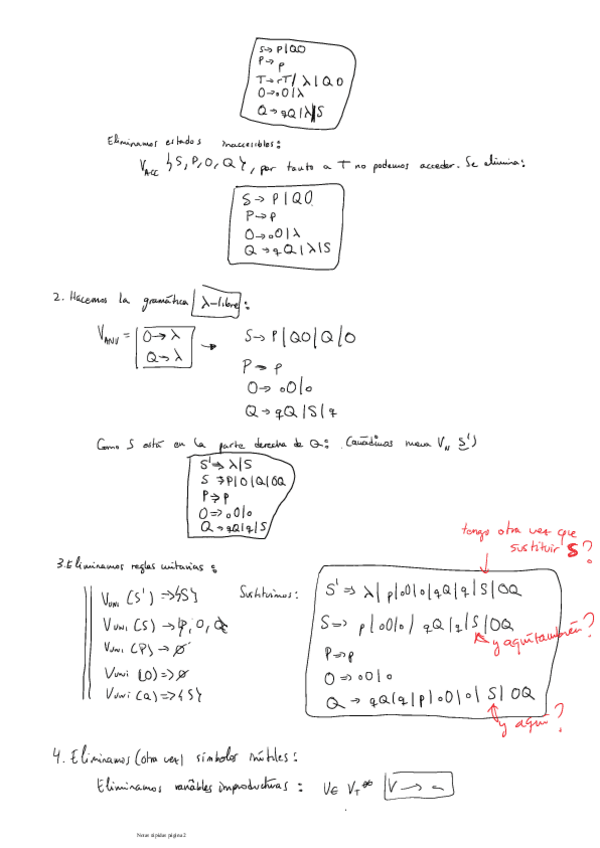 S → P | QO
P → p
T → rT | λ | QO
O → oO | λ
Q → qQ | λ | S
Eliminamos estados inaccesibles:
V_ACC {S, P, O, Q}, por tanto a T no podemos acceder. Se elimina:
S → P | QO
P → p
O → oO | λ
Q → qQ | λ | S
2. Hacemos la gramática λ-libre:
V_ANU = O → λ
Q → λ
→ S → P | QO | Q | O
P → p
O → oO | o
Q → qQ | S | q
Como S está en la parte derecha de Q: (añadimos nueva V_N S')
S' → λ | S
S → P | O | Q | OQ
P → p
O → oO | o
Q → qQ | q | S
tengo otra vez que
sustituir S?
3. Eliminamos reglas unitarias:
V_UNI (S') → {S}
V_UNI (S) → {P, O, Q
V_UNI (P) → ∅
V_UNI (O) → ∅
V_UNI (Q) → {S}
Sustituimos:
S' → λ | p | oO | o | qQ | q | S | OQ
S → p | oO | o | qQ | q | S | OQ
y aquí también?
P → p
O → oO | o
Q → qQ | q | p | oO | o | S | OQ
y aquí?
4. Eliminamos (otra vez) símbolos inútiles:
Eliminamos variables improductivas: V ∈ V_T* V → a
Notas rápidas página 2